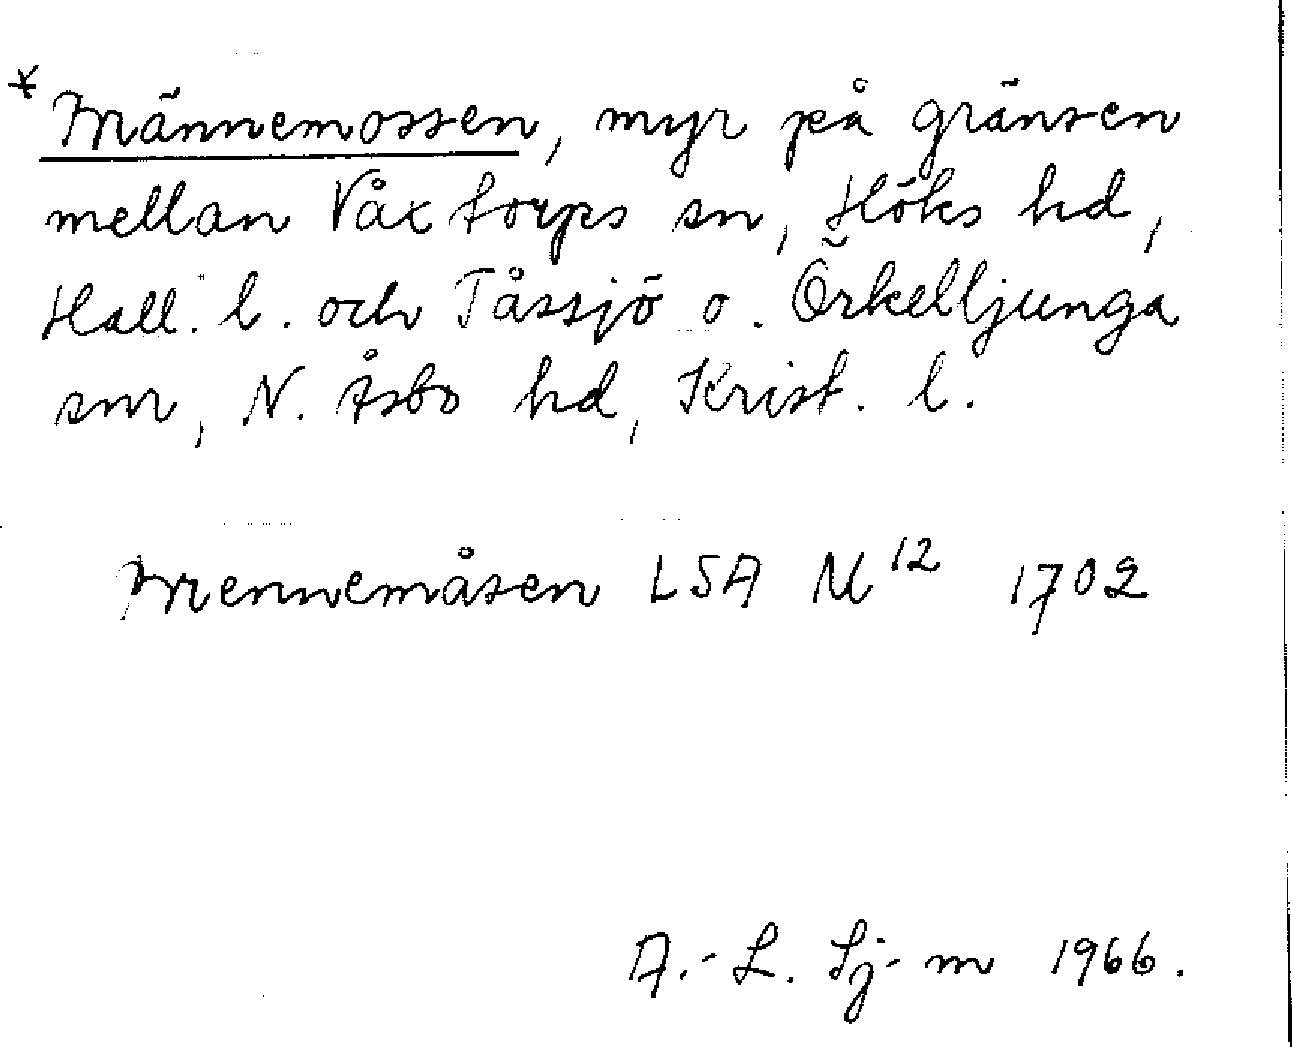 * Männemossen, myr på gränsen
mellan Våxtorps sn, Höks hd,
Hall. l. och Tåssjö o. Örkelljunga
snr, N. Åsbo hd, Krist. l.
Mennemåsen LSA M 12 1702
A.-L. Sj-m 1966.